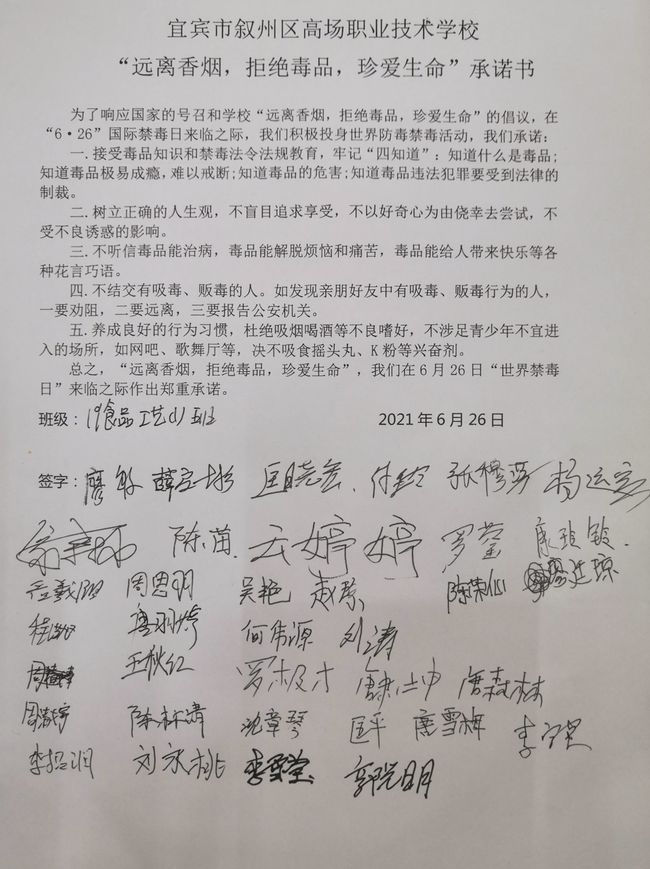 宜宾市叙州区高场职业技术学校
“远离香烟，拒绝毒品，珍爱生命”承诺书
为了响应国家的号召和学校“远离香烟，拒绝毒品，珍爱生命”的倡议，在
“6·26”国际禁毒日来临之际，我们积极投身世界防毒禁毒活动，我们承诺：
一.接受毒品知识和禁毒法令法规教育，牢记“四知道”：知道什么是毒品；
知道毒品极易成瘾，难以戒断；知道毒品的危害；知道毒品违法犯罪要受到法律的
制裁。
二.树立正确的人生观，不盲目追求享受，不以好奇心为由侥幸去尝试，不
受不良诱惑的影响。
三.不听信毒品能治病，毒品能解脱烦恼和痛苦，毒品能给人带来快乐等各
种花言巧语。
四.不结交有吸毒、贩毒的人。如发现亲朋好友中有吸毒、贩毒行为的人，
一要劝阻，二要远离，三要报告公安机关。
五.养成良好的行为习惯，杜绝吸烟喝酒等不良嗜好，不涉足青少年不宜进
入的场所，如网吧、歌舞厅等，决不吸食摇头丸、K粉等兴奋剂。
总之，“远离香烟，拒绝毒品，珍爱生命”，我们在6月26日“世界禁毒
日”来临之际作出郑重承诺。
班级：19食品工艺(1)班 2021年6月26日
签字：廖敏
陈苗 云婷婷 罗莹
周思明 吴艳
何伟源 刘涛
王秋红 罗极才 唐森林
陈林清 沈章琴 匡平 唐雪梅
刘永桃 郭光明